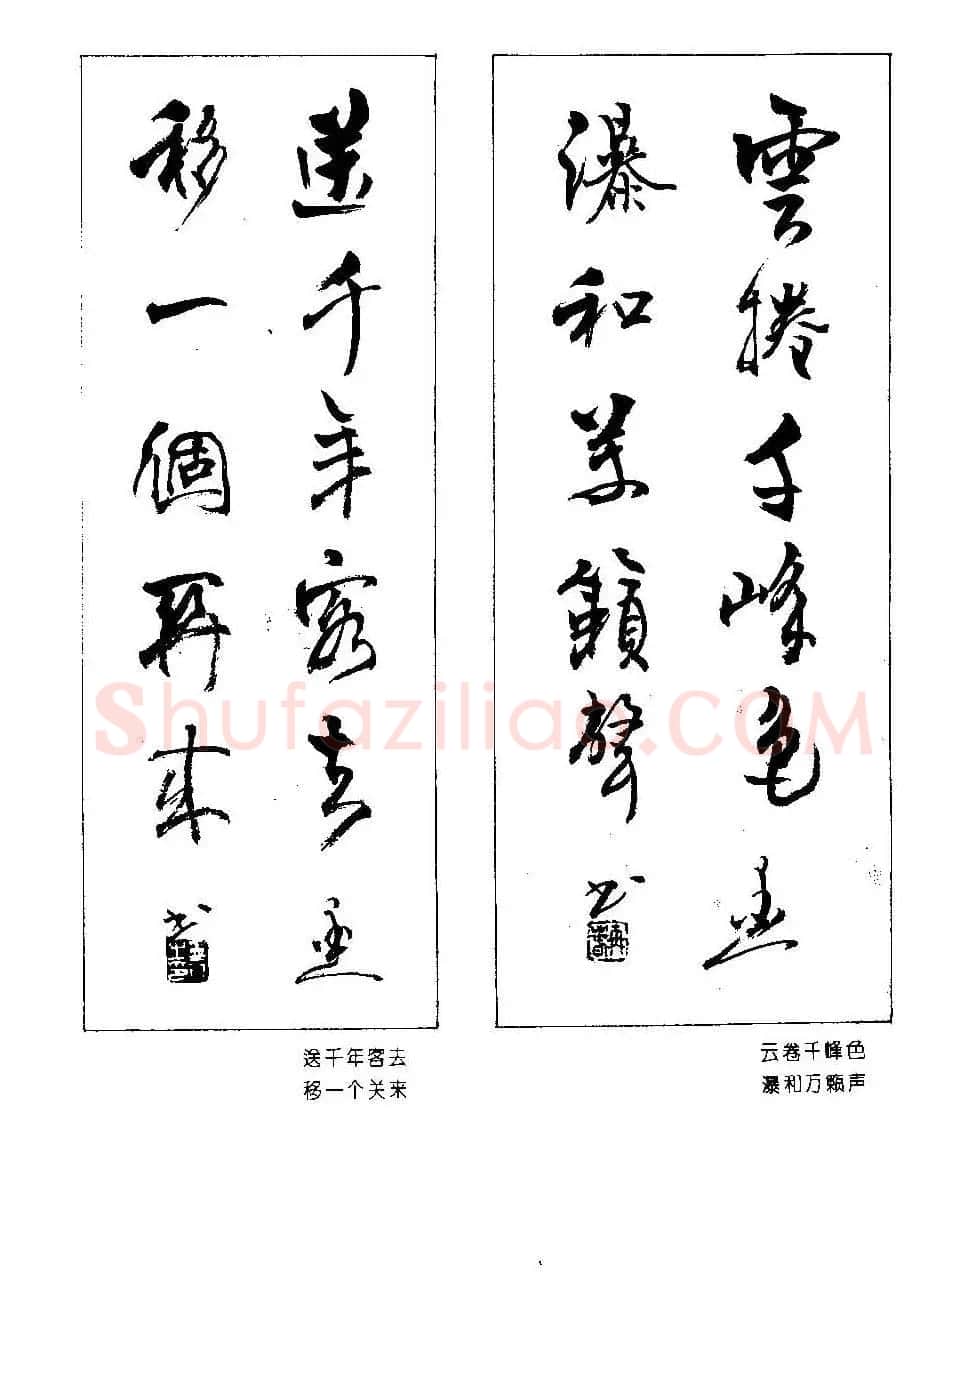 雲捲千峰色
瀑和萬籟聲
书
送千年客去
移一個來
书
云卷千峰色
瀑和万声
送千年客去
移一个关来
Shufaziliao.COM